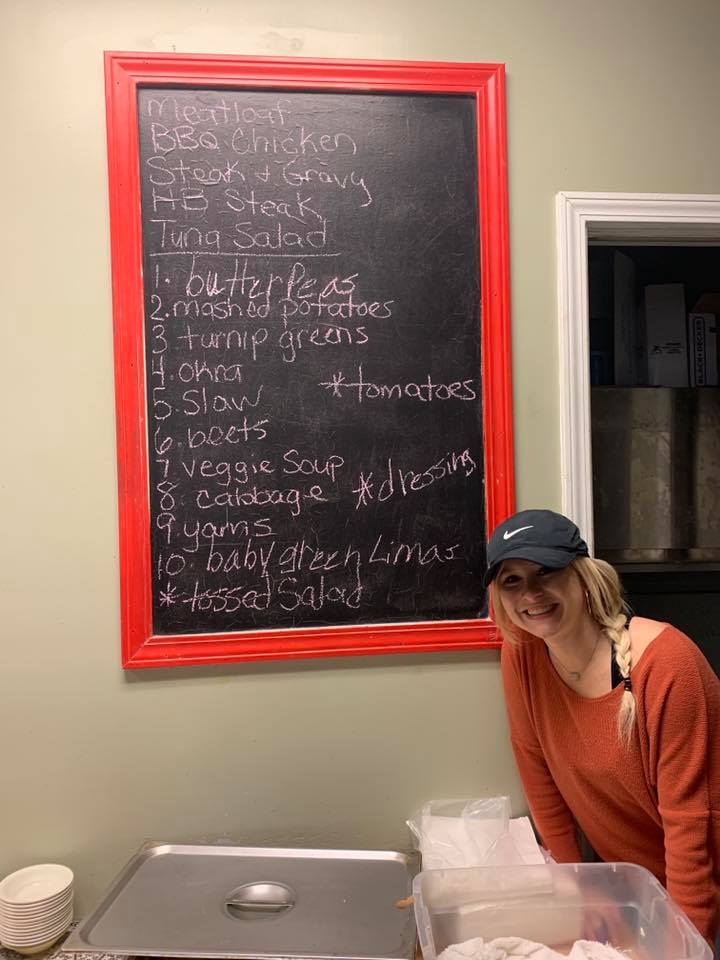 Meatloaf
BBQ Chicken
Steak & Gravy
HB Steak
Tuna Salad
1. butter Peas
2. mashed potatoes
3 turnip greens
4. okra
*tomatoes
5. Slaw
6. beets
7 veggie Soup
*dressing
8. cabbage
9 yams
10. baby green Limas
*tossed Salad
BLACK+DECKER